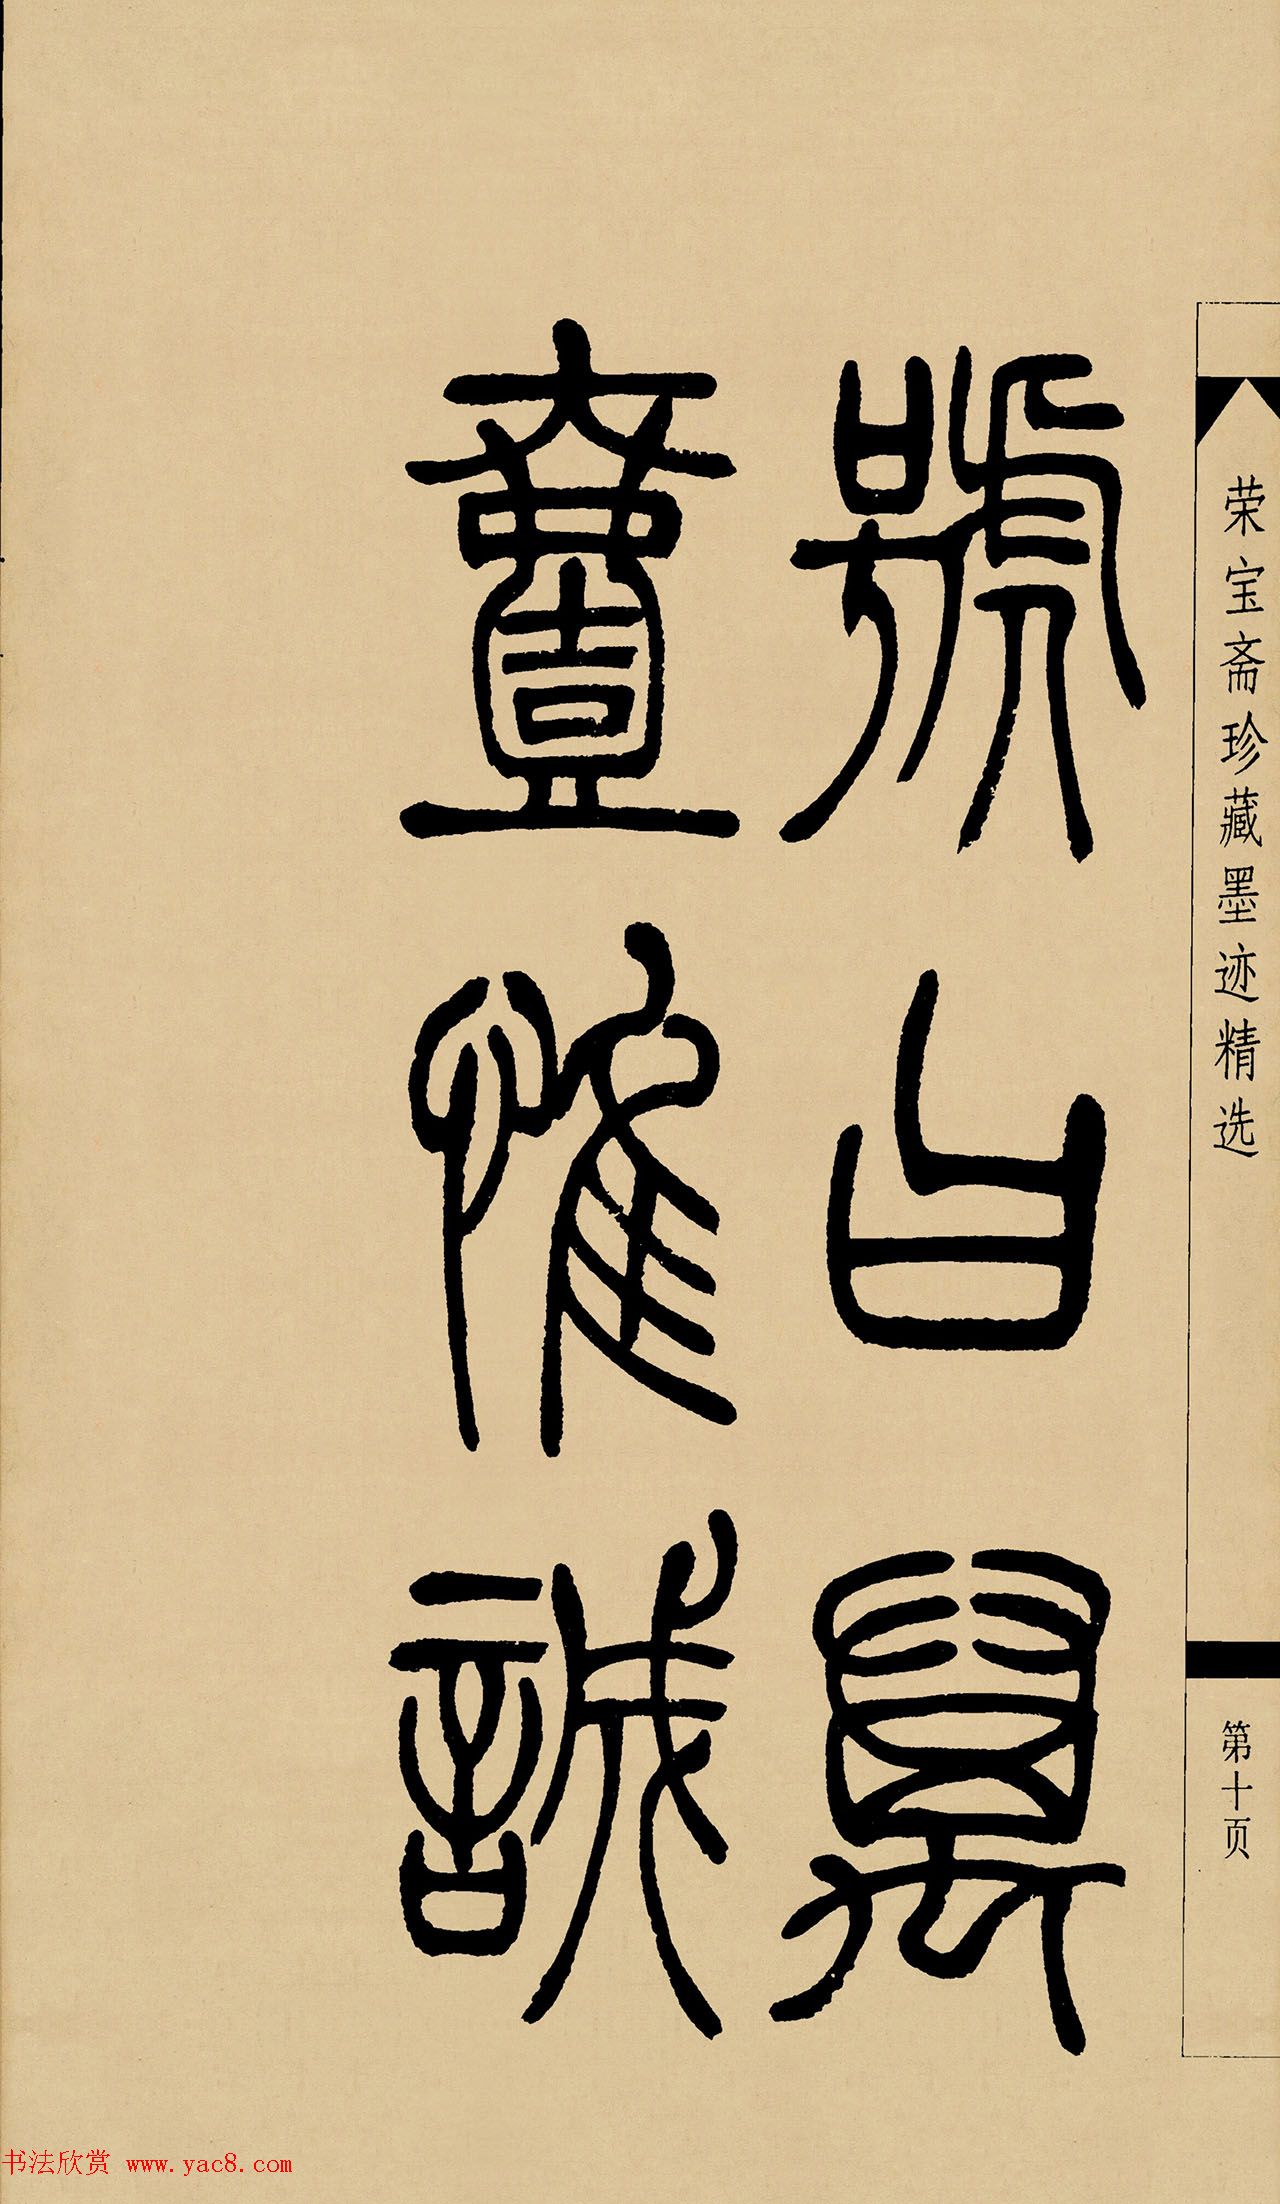 荣宝斋珍藏墨迹精选
第十页
號曰
惟誠
书法欣赏 www.yac8.com